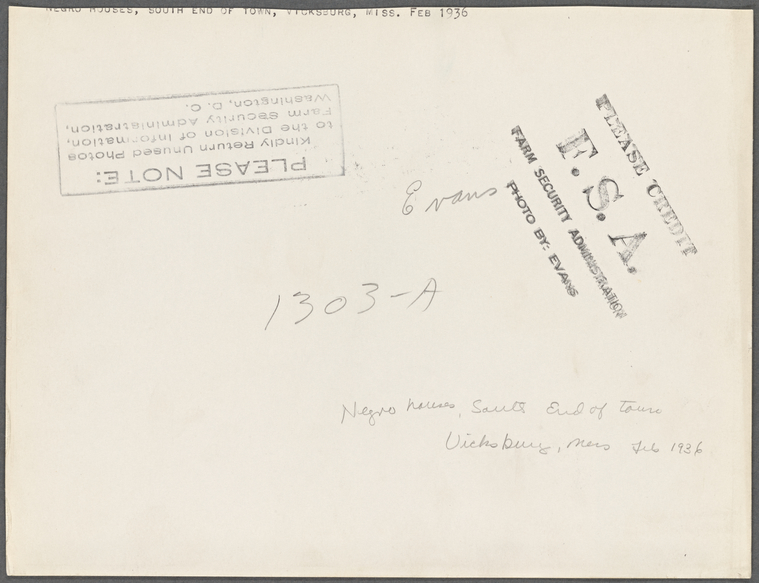 NEGRO HOUSES, SOUTH END OF TOWN, VICKSBURG, MISS. FEB 1936
PLEASE NOTE:
Kindly Return Unused Photos
to the Division of Information,
Farm Security Administration,
Washington, D. C.
PLEASE CREDIT
F. S. A.
FARM SECURITY ADMINISTRATION
PHOTO BY: EVANS
Evans
1303-A
Negro houses, South End of town
Vicksburg, Miss Feb 1936